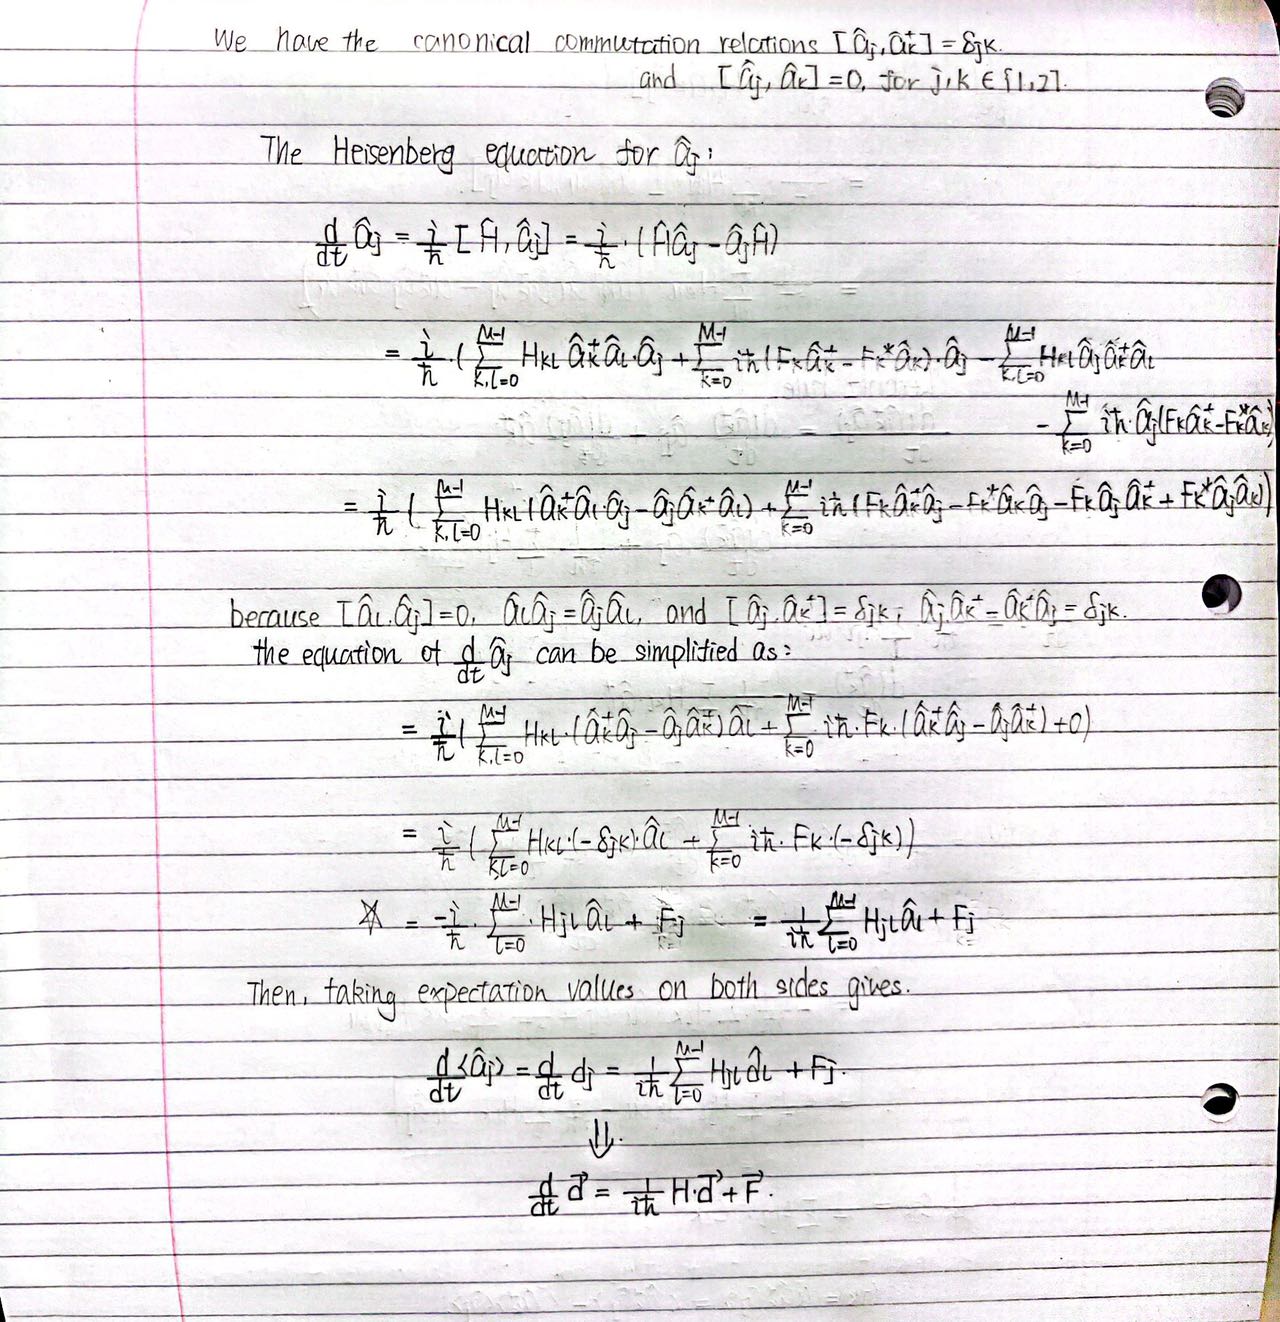 We have the canonical commutation relations [âj, âk⁺] = δjk.
and [âj, âk] = 0, for j,k ∈ {1,2}.
The Heisenberg equation for âj:
d/dt âj = i/ħ [Ĥ, âj] = i/ħ · (Ĥâj - âjĤ)
= i/ħ · (∑_{k,l=0}^{M-1} Hkl âk⁺ âl · âj + ∑_{k=0}^{M-1} iħ (Fk âk⁺ - Fk* âk) · âj - ∑_{k,l=0}^{M-1} Hkl âj âk⁺ âl
- ∑_{k=0}^{M-1} iħ · âj (Fk âk⁺ - Fk* âk)
= i/ħ (∑_{k,l=0}^{M-1} Hkl (âk⁺ âl · âj - âj âk⁺ âl) + ∑_{k=0}^{M-1} iħ (Fk âk⁺ âj - Fk* âk âj - Fk âj âk⁺ + Fk* âj âk))
because [âl, âj] = 0, âl âj = âj âl, and [âj, âk⁺] = δjk, âj âk⁺ - âk⁺ âj = δjk.
the equation of d/dt âj can be simplified as:
= i/ħ (∑_{k,l=0}^{M-1} Hkl · (âk⁺ âj - âj âk⁺) âl + ∑_{k=0}^{M-1} iħ · Fk · (âk⁺ âj - âj âk⁺) + 0)
= i/ħ (∑_{k,l=0}^{M-1} Hkl · (-δjk) · âl + ∑_{k=0}^{M-1} iħ · Fk · (-δjk))
☆ = -i/ħ · ∑_{l=0}^{M-1} · Hjl âl + Fj = 1/iħ ∑_{l=0}^{M-1} Hjl âl + Fj
Then, taking expectation values on both sides gives.
d/dt ⟨âj⟩ = d/dt dj = 1/iħ ∑_{l=0}^{M-1} Hjl d̂l + Fj.
⇓
d/dt d⃗ = 1/iħ H · d⃗ + F⃗.